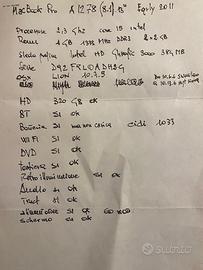 MacBook Pro A 1278 (8.1) 13" Early 2011
Processore 2,3 GHz core i5 intel
Ram 4 GB 1333 MHz DDR3 2x2 GB
Scheda video Intel HD Graphic 3000 384 MB
Serie
OSX LION 10.7.5
HD 320 GB ok
BT SI ok
Batteria SI ma non carica cicli 1033
WIFI SI ok
DVD SI ok
Tastiera SI ok
Retroilluminazione SI ok
Audio SI ok
Trust SI ok
Alimentatore SI ok
Schermo SI ok
SUbito